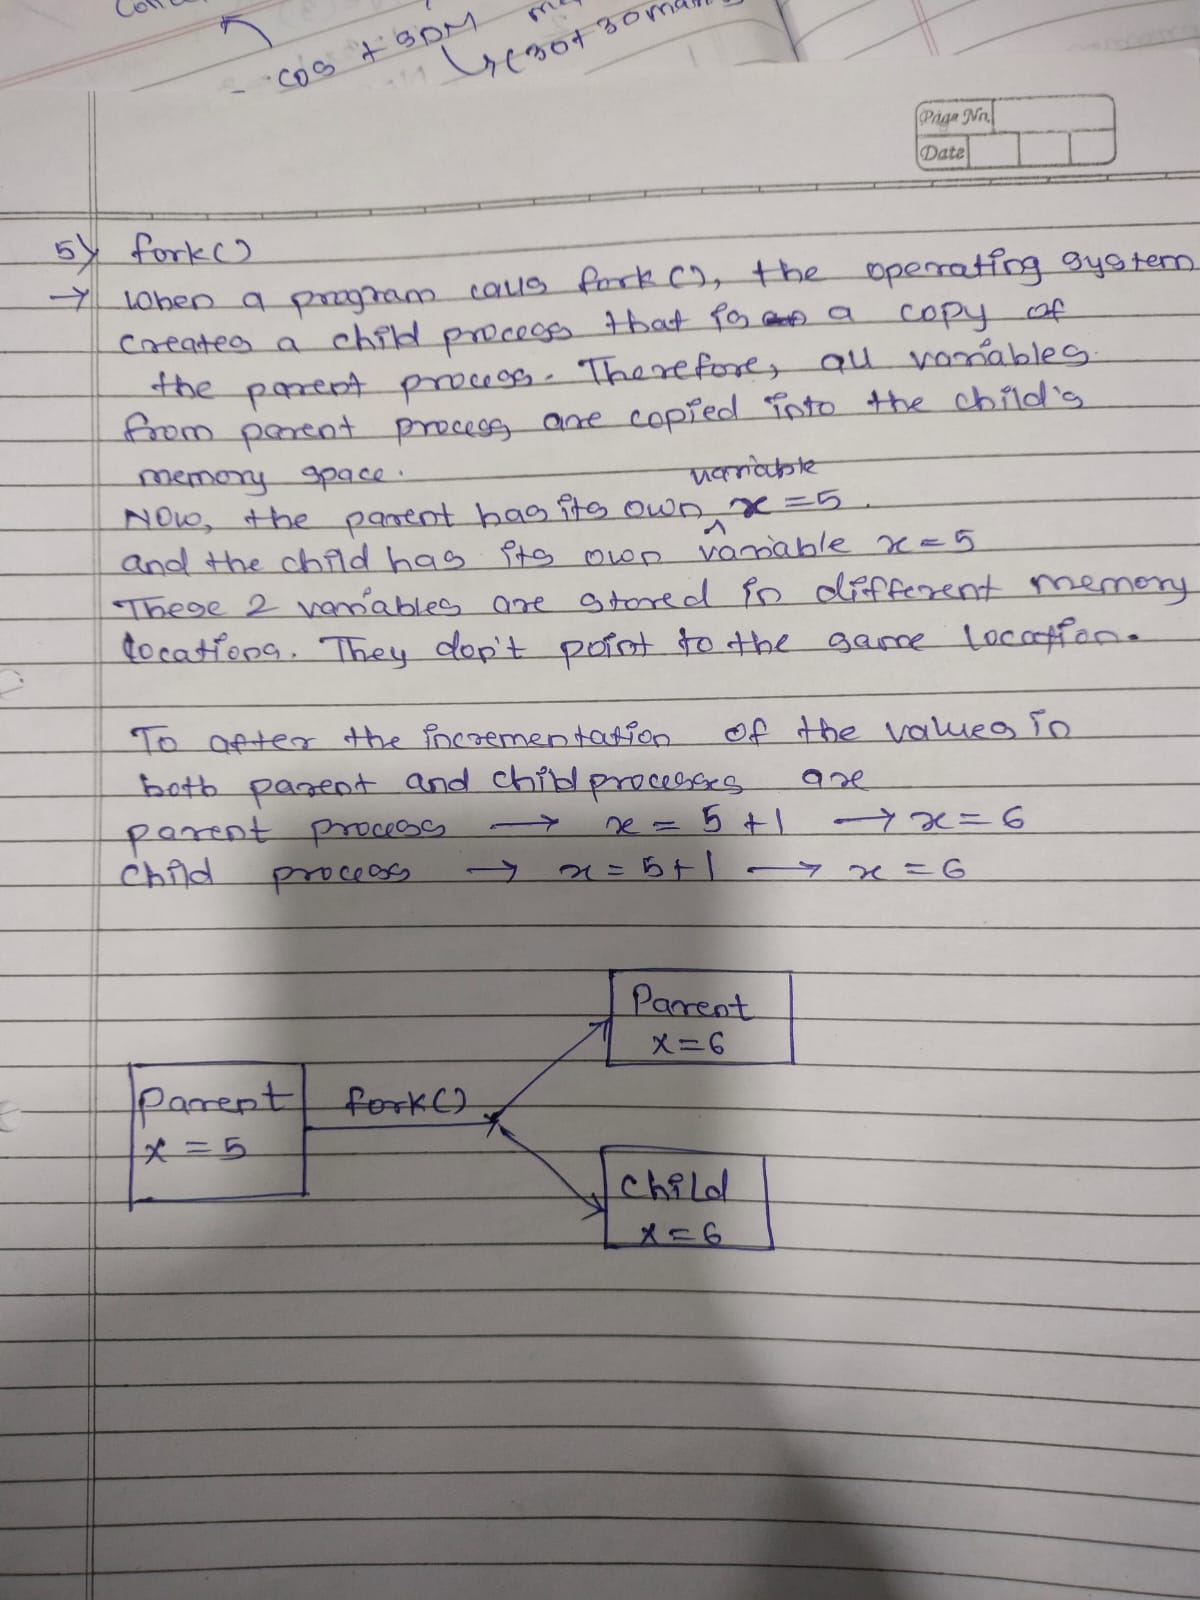 cos + SPM
(30+30
Page No.
Date
5) fork()
→ When a program calls fork(), the operating system
creates a child process that is a copy of
the parent process. Therefore, all variables
from parent process are copied into the child's
memory space.
variable
Now, the parent has its own ^ x = 5.
and the child has its own variable x = 5
These 2 variables are stored in different memory
locations. They don't point to the same location.
To after the incrementation of the values in
both parent and child processes are
parent process → x = 5 + 1 → x = 6
child process → x = 5 + 1 → x = 6
Parent
x = 6
Parent fork()
x = 5
Child
x = 6